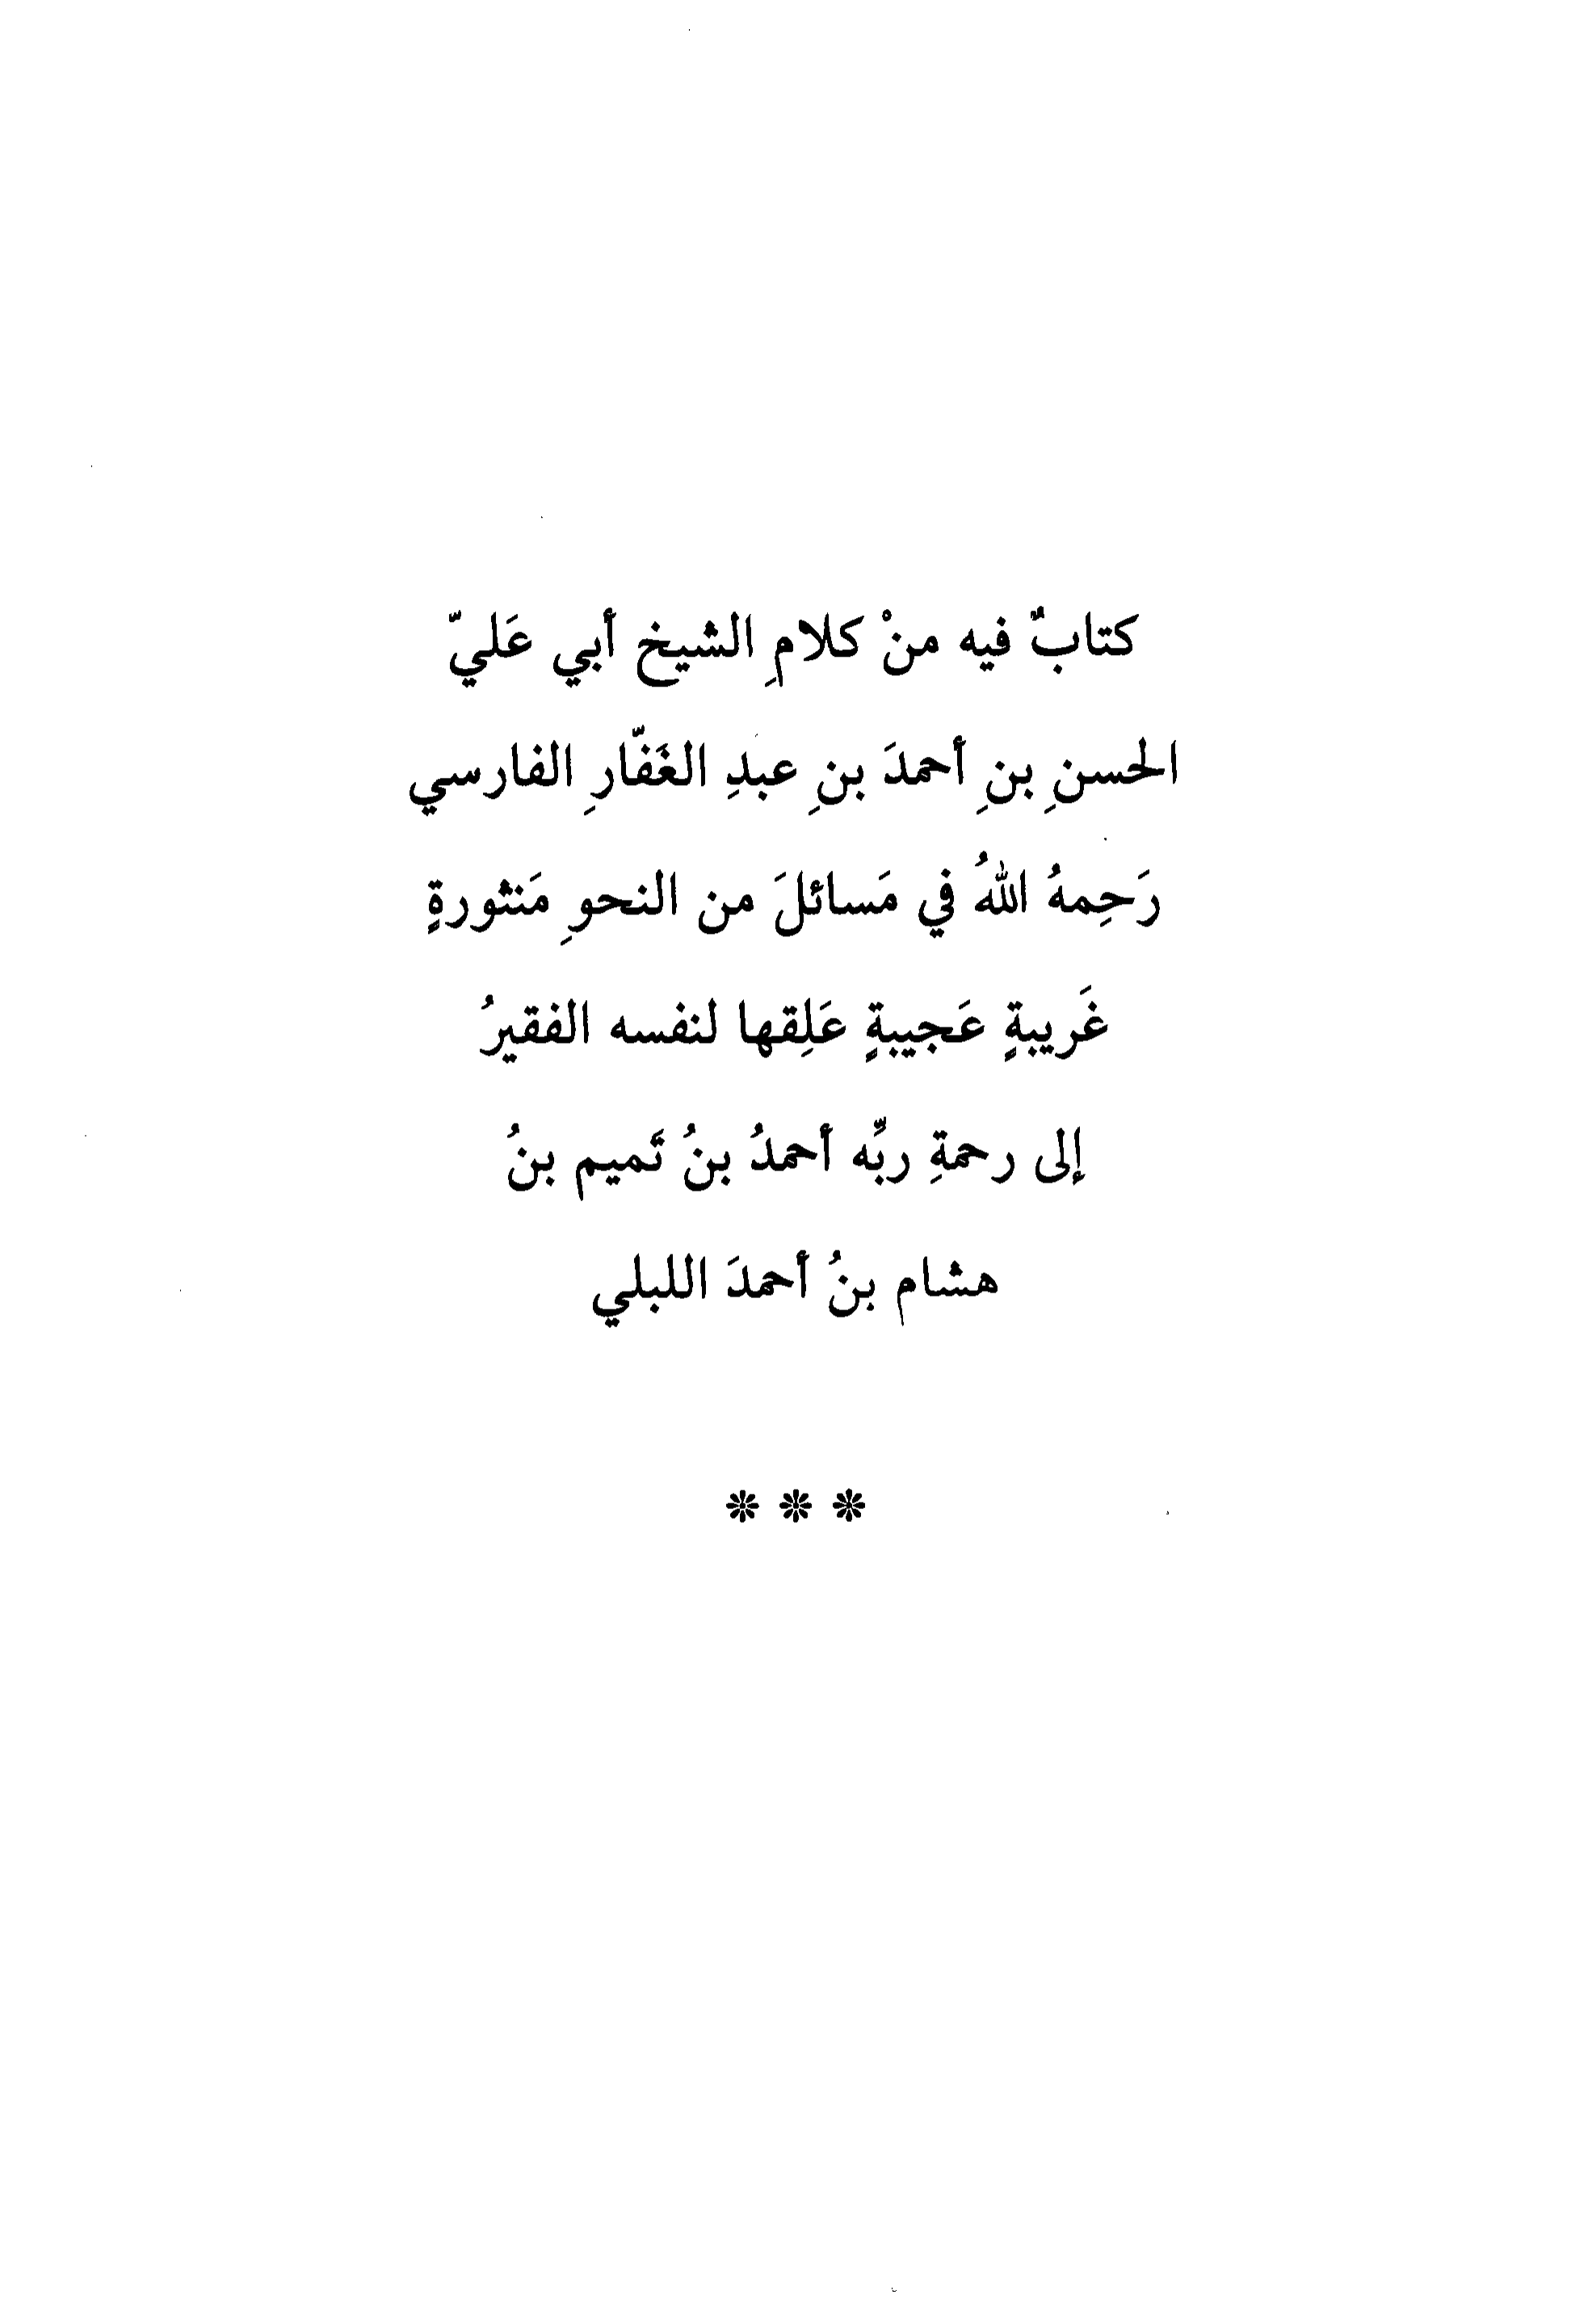 كتابٌ فيه منْ كلامِ الشيخ أبي عَليّ
الحسنِ بنِ أحمدَ بنِ عبدِ الغَفّارِ الفارسي
رَحِمهُ اللهُ في مَسائلَ من النحوِ مَنثورةٍ
غَريبةٍ عَجيبةٍ عَلِقها لنفسه الفقيرُ
إلى رحمةِ ربِّه أحمدُ بنُ تَميم بنُ
هشام بنُ أحمدَ اللبلي
❊ ❊ ❊